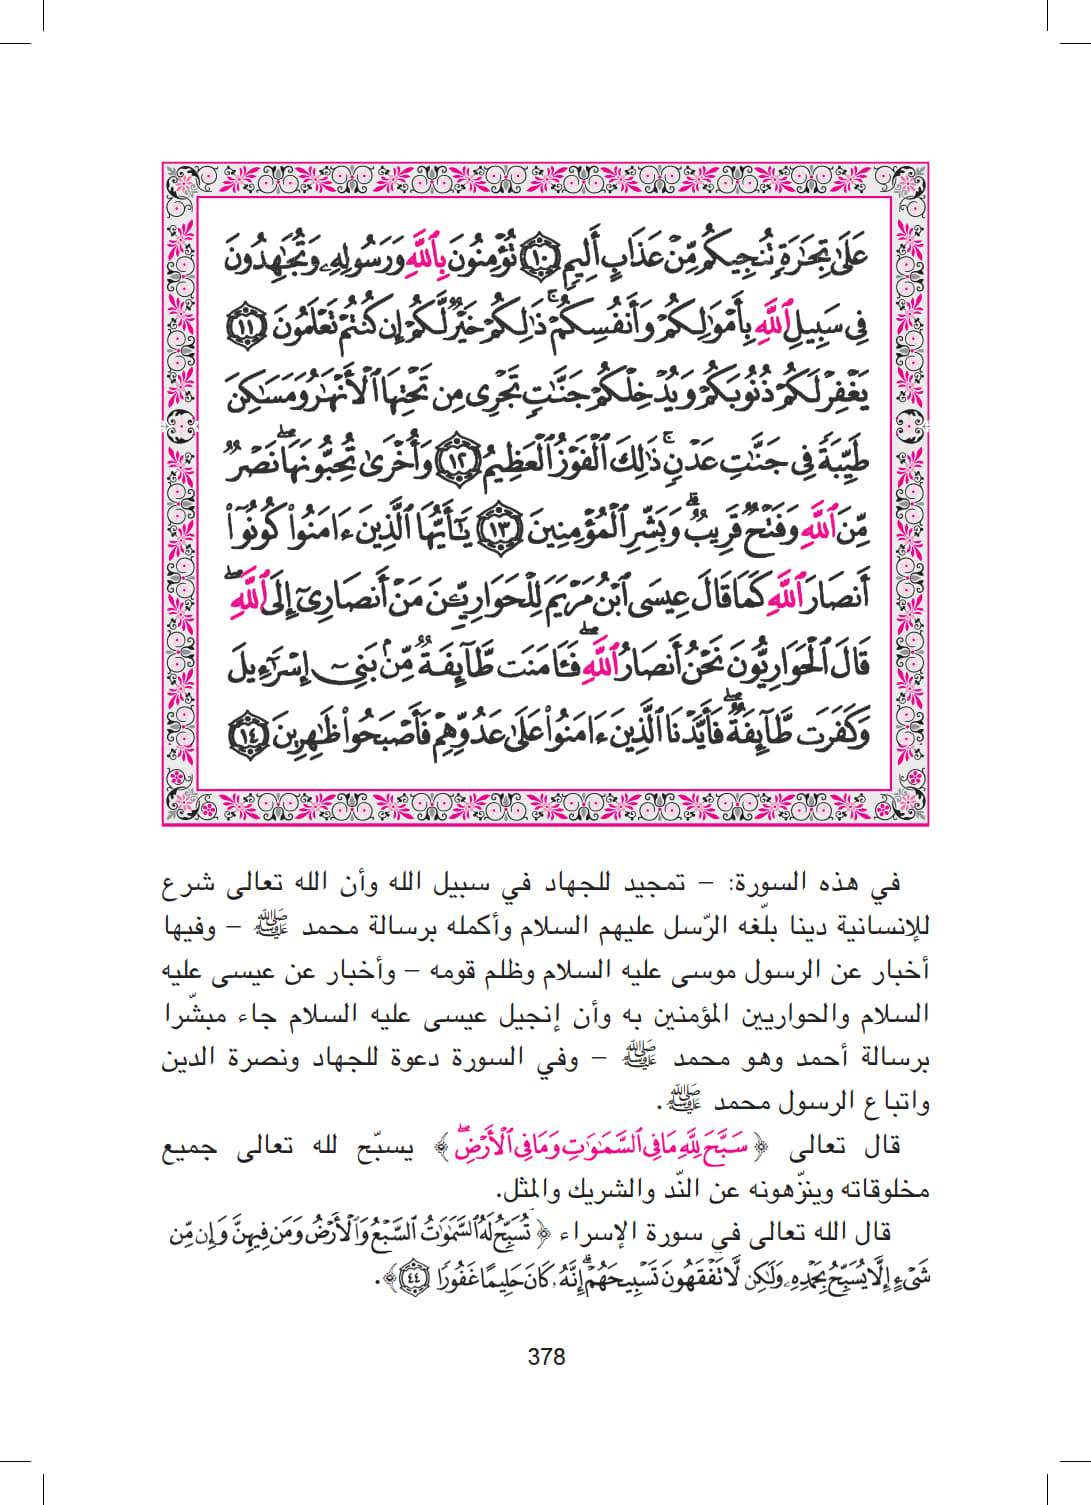 عَلَىٰ تِجَٰرَةٖ تُنجِيكُم مِّنۡ عَذَابٍ أَلِيمٖ ١٠ تُؤۡمِنُونَ بِٱللَّهِ وَرَسُولِهِۦ وَتُجَٰهِدُونَ
فِي سَبِيلِ ٱللَّهِ بِأَمۡوَٰلِكُمۡ وَأَنفُسِكُمۡۚ ذَٰلِكُمۡ خَيۡرٞ لَّكُمۡ إِن كُنتُمۡ تَعۡلَمُونَ ١١
يَغۡفِرۡ لَكُمۡ ذُنُوبَكُمۡ وَيُدۡخِلۡكُمۡ جَنَّٰتٖ تَجۡرِي مِن تَحۡتِهَا ٱلۡأَنۡهَٰرُ وَمَسَٰكِنَ
طَيِّبَةٗ فِي جَنَّٰتِ عَدۡنٖۚ ذَٰلِكَ ٱلۡفَوۡزُ ٱلۡعَظِيمُ ١٢ وَأُخۡرَىٰ تُحِبُّونَهَاۖ نَصۡرٞ
مِّنَ ٱللَّهِ وَفَتۡحٞ قَرِيبٞۗ وَبَشِّرِ ٱلۡمُؤۡمِنِينَ ١٣ يَٰٓأَيُّهَا ٱلَّذِينَ ءَامَنُواْ كُونُوٓاْ
أَنصَارَ ٱللَّهِ كَمَا قَالَ عِيسَى ٱبۡنُ مَرۡيَمَ لِلۡحَوَارِيِّـۧنَ مَنۡ أَنصَارِيٓ إِلَى ٱللَّهِۖ
قَالَ ٱلۡحَوَارِيُّونَ نَحۡنُ أَنصَارُ ٱللَّهِۖ فَـَٔامَنَت طَّآئِفَةٞ مِّنۢ بَنِيٓ إِسۡرَٰٓءِيلَ
وَكَفَرَت طَّآئِفَةٞۖ فَأَيَّدۡنَا ٱلَّذِينَ ءَامَنُواْ عَلَىٰ عَدُوِّهِمۡ فَأَصۡبَحُواْ ظَٰهِرِينَ ١٤
في هذه السورة: – تمجيد للجهاد في سبيل الله وأن الله تعالى شرع
للإنسانية دينا بلّغه الرّسل عليهم السلام وأكمله برسالة محمد ﷺ – وفيها
أخبار عن الرسول موسى عليه السلام وظلم قومه – وأخبار عن عيسى عليه
السلام والحواريين المؤمنين به وأن إنجيل عيسى عليه السلام جاء مبشّرا
برسالة أحمد وهو محمد ﷺ – وفي السورة دعوة للجهاد ونصرة الدين
واتباع الرسول محمد ﷺ.
قال تعالى ﴿ سَبَّحَ لِلَّهِ مَا فِي ٱلسَّمَٰوَٰتِ وَمَا فِي ٱلۡأَرۡضِۖ ﴾ يسبّح لله تعالى جميع
مخلوقاته وينزّهونه عن النّد والشريك والمثل.
قال الله تعالى في سورة الإسراء ﴿ تُسَبِّحُ لَهُ ٱلسَّمَٰوَٰتُ ٱلسَّبۡعُ وَٱلۡأَرۡضُ وَمَن فِيهِنَّۚ وَإِن مِّن
شَيۡءٍ إِلَّا يُسَبِّحُ بِحَمۡدِهِۦ وَلَٰكِن لَّا تَفۡقَهُونَ تَسۡبِيحَهُمۡۗ إِنَّهُۥ كَانَ حَلِيمًا غَفُورٗا ٤٤ ﴾.
378